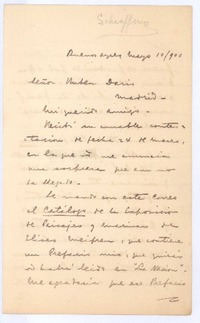 Schiaffino
Buenos Ayres Mayo 10/900
Señor Rubén Darío
Madrid
Mi querido amigo.
Recibí su amable contes-
tacion de fecha 24 de Marzo,
en la que me anuncia
una sorpresa que aun no
ha llegado.
Le mando con este correo
el Catálogo de la Exposicion
de Paisages y marinas de
Eliseo Meifren, que contiene
un Prefacio mio, que quizás
habrá leido en "La Nacion".
Me agradaría que ese Prefacio